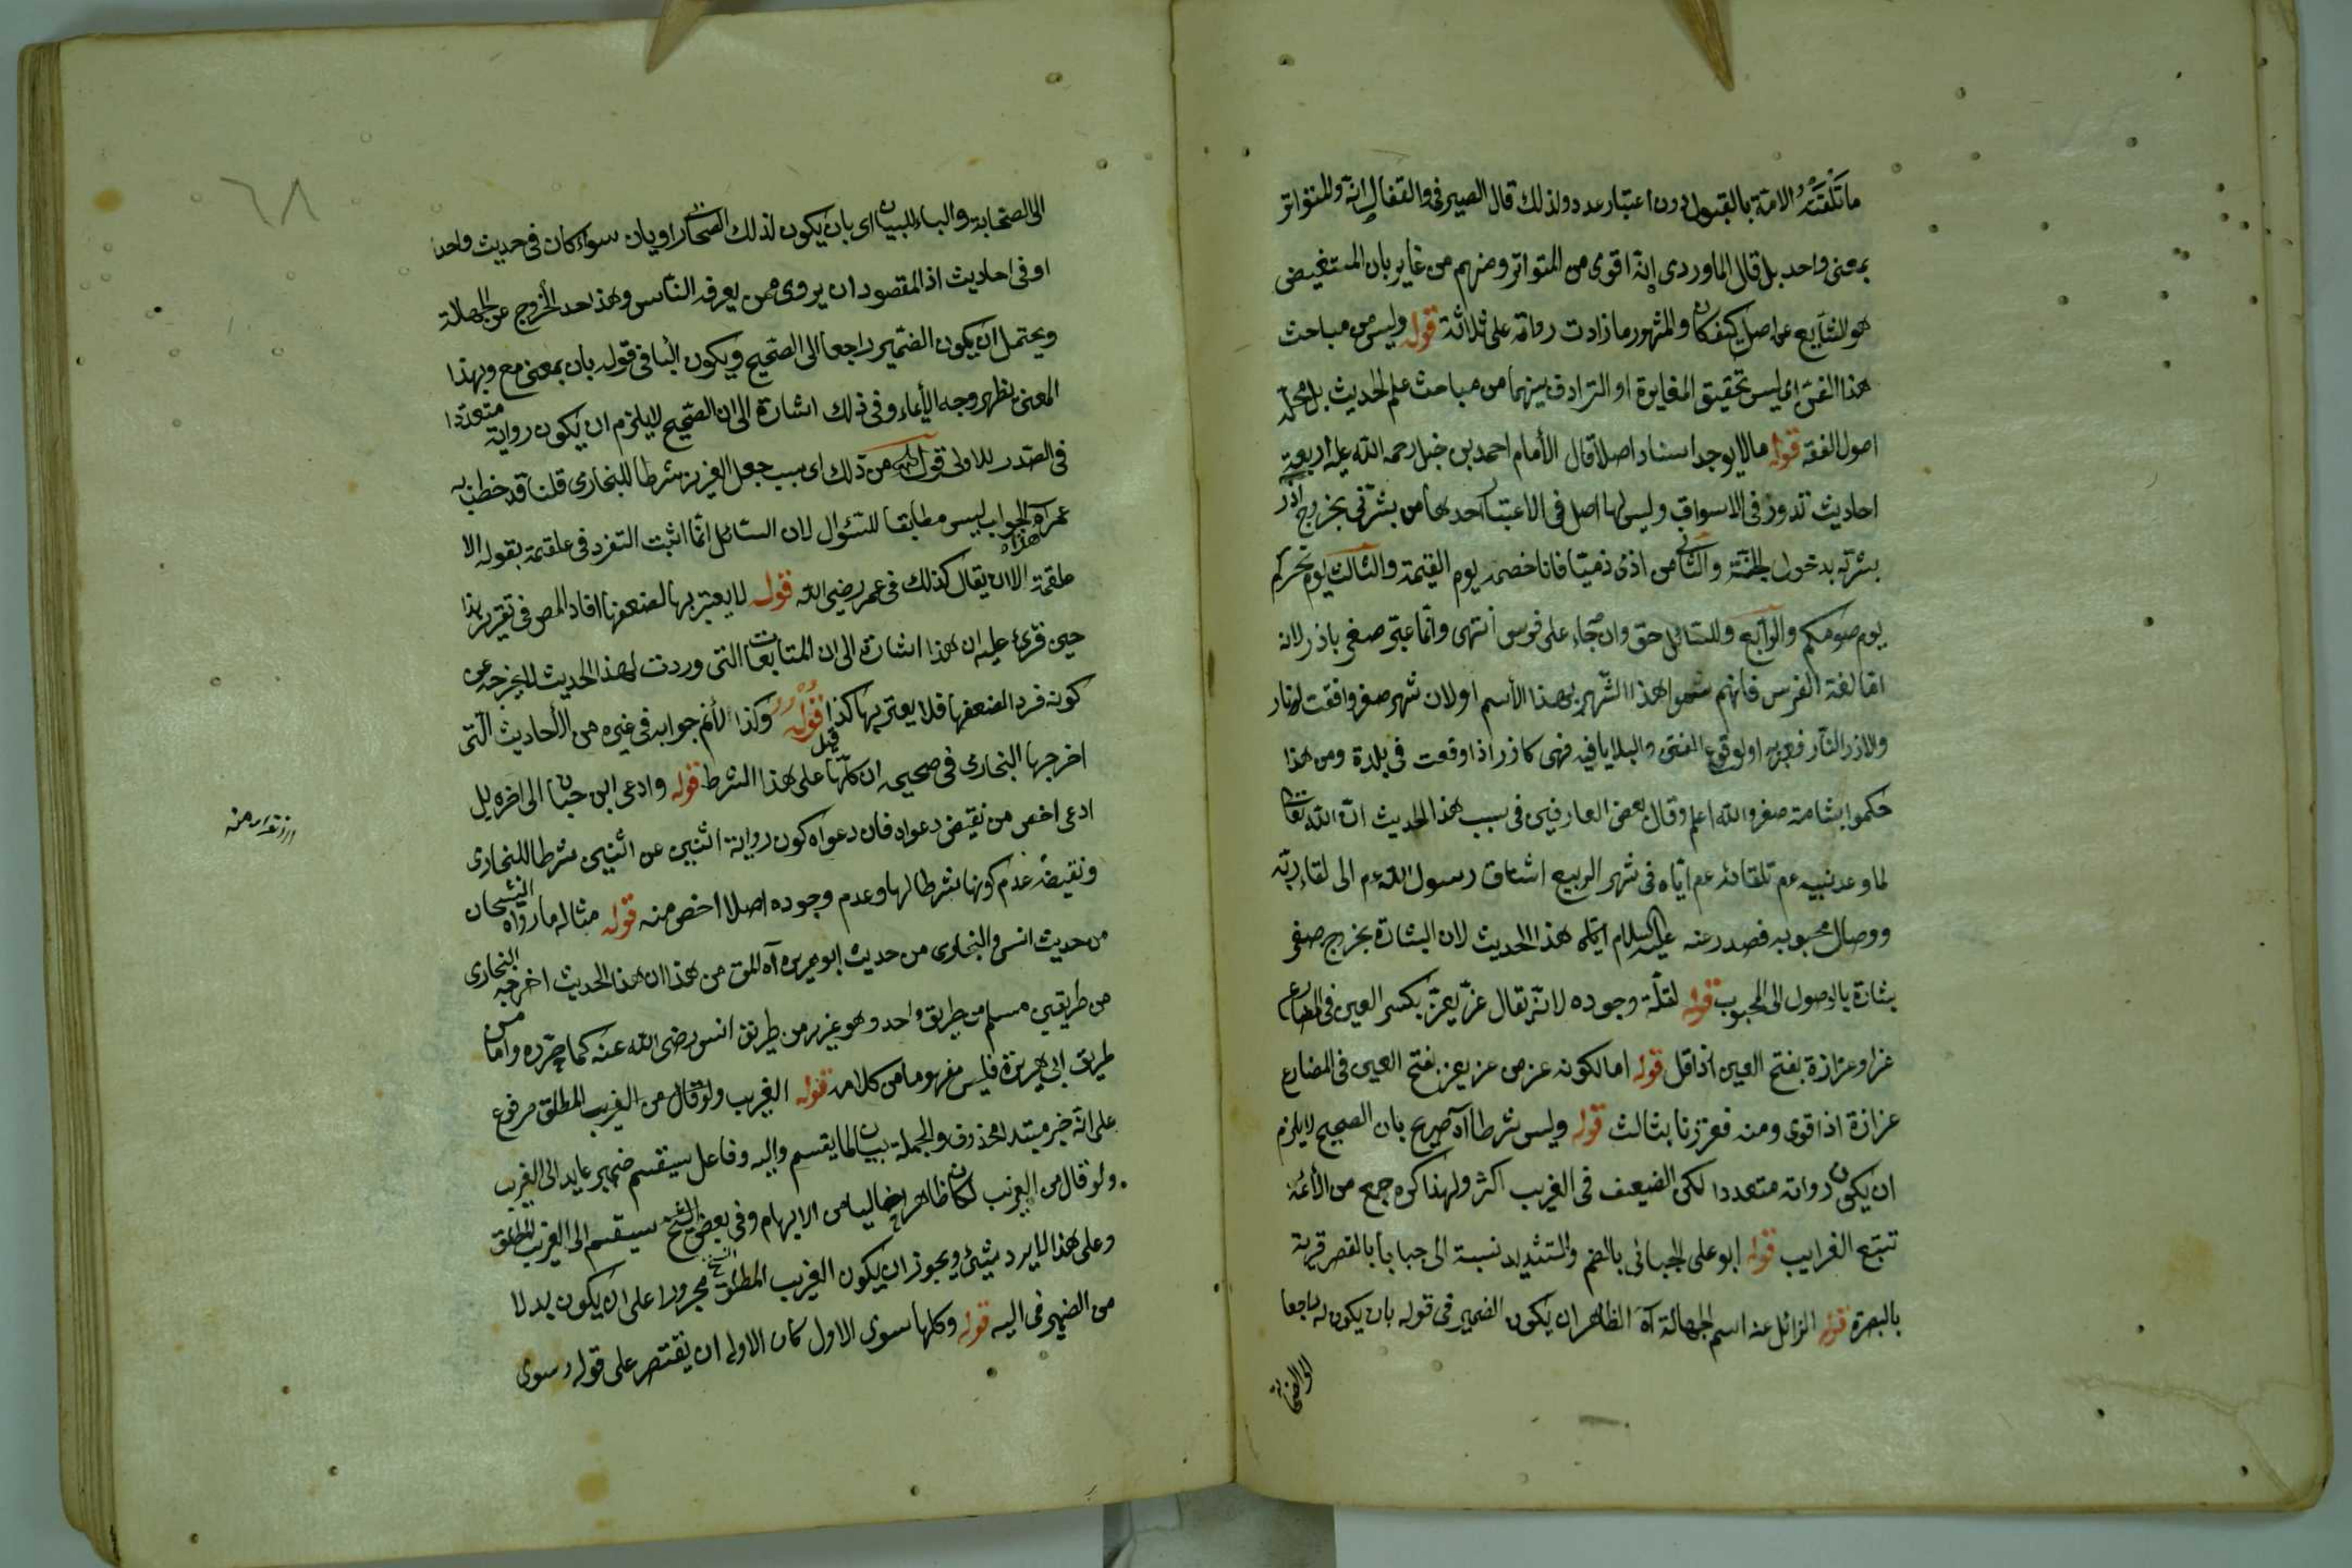 ما تَلَقَّتْهُ الامة بالقبول دون اعتبار عدد ولذلك قال الصيرفى والقفال انه والمتواتر
بمعنى واحد بل قال الماوردى انه اقوى من المتواتر ومنهم من غاير بان المستفيض
هو الشايع عن اصل كيف كان والمشهور ما زادت رواته على ثلاثة قوله وليس من مباحث
هذا الفن اى ليس تحقيق المغايرة او الترادف بينهما من مباحث علم الحديث بل محله
اصول الفقه قوله مالا يوجد اسناد اصلا قال الأمام احمد بن حنبل رحمه الله عليه اربعة
احاديث تدور فى الاسواق وليس لها اصل فى الاعتبار احدها من بشرنى بخروج اذر
بشرته بدخول الجنة والثانى من اذى ذميا فانا خصمه يوم القيمة والثالث يوم نحركم
يوم صومكم والرابع وللسائل حق وان جاء على فرس انتهى وانما عبر صفر باذر لانه
لغة الفرس فانهم سموا هذا الشهر بهذا الأسم او لان شهر صفر وافقت
والاذر النار فعبر به او لوقوع الفتن والبلايا فيه فهى كاذر اذا وقعت فى بلدة ومن هذا
حكموا بشامة صفر والله اعلم وقال بعض العارفين فى سبب هذا الحديث ان الله تعالى
لما وعد نبيه عم تلقائه عم اياه فى شهر الربيع اشتاق رسول الله عم الى لقاء ربه
ووصال محبوبه فصدر عنه عليه السلام هذا الحديث لان البشارة بخروج صفر
بشارة بالوصول الى المحبوب قوله لقلة وجوده لانه يقال عزّ يعزّ بكسر العين فى المضارع
عزا وعزازة بفتح العين اذا قل قوله اما لكونه عز من عز يعز بفتح العين فى المضارع
عزازة اذا قوى ومنه فعززنا بثالث قوله وليس شرطا آه صريح بان الصحيح لا يلزم
ان يكون رواته متعددا لكن الضعيف فى الغريب اكثر ولهذا كره جمع من الأئمة
تتبع الغرايب قوله ابو على الجبائى بالضم والتشديد نسبة الى جبا بالقصر قرية
بالبصرة قوله الزائل عنه اسم الجهالة آه الظاهر ان يكون الضمير فى قوله بان يكون له راجعا
الى الصحابة
٦٨
الى الصحابة والباء للبيان اى بان يكون لذلك الصحابى راويان سواء كان فى حديث واحد
او فى احاديث اذ المقصود ان يروى ممن يعرفه الناس وهذا حد الخروج عن الجهالة
ويحتمل ان يكون الضمير راجعا الى الصحيح ويكون البا فى قوله بان بمعنى مع وبهذا
المعنى يظهر وجه الأيماء وفى ذلك اشارة الى ان الصحيح لا يلزم ان يكون رواية متعددا
فى الصدر للاولى قوله من ذلك اى بسبب جعل العزيز شرطا للبخارى قلنا قد خطب به
عمر آه هذا الجواب ليس مطابقا للسؤال لان السائل انما اثبت التفرد فى علقمة بقوله الا
علقمة الا ان يقال كذلك فى عمر رضى الله قوله لا يعتبر بها لضعفها افاد المص فى تقرير هذا
حين قرئ عليه ان هذا اشارة الى ان المتابعات التى وردت لهذا الحديث لا يخرجه عن
كونه فردا لضعفها فلا يعتبر بها كذا قيل قوله وكذا لأنم جوابه فى غيره من الأحاديث التى
اخرجها البخارى فى صحيحه ان كلها على هذا الشرط قوله وادعى ابن حبان الى اخره بل
ادعى اخص من نقيض دعواه فان دعواه كون رواية اثنين عن اثنين شرطا للبخارى
ونقيضه عدم كونها شرطا لها وعدم وجوده اصلا اخص منه قوله مثاله ما رواه الشيخان
من حديث انس والبخارى من حديث ابو هريرة آه المق من هذا ان هذا الحديث اخرجه البخارى
من طريقين مسلم من طريق واحد وهو عزيز من طريق انس رضى الله عنه كما حرره واما من
طريق ابى هريرة فليس مفهوما من كلامه قوله الغريب ولو قال من الغريب المطلق مرفوع
على انه خبر مبتدا محذوف والجملة بيان لما يقسم واليه وفاعل سيقسم ضمير عايد الى الغريب
ولو قال من الغريب لكان ظاهرا خاليا من الايهام وفى بعض النسخ سيقسم الى الغريب المطلق
وعلى هذا لا يرد بشئ ويجوز ان يكون الغريب المطلق مجرورا على ان يكون بدلا
من الضمير فى اليه قوله وكلها سوى الاول كان الاولى ان يقتصر على قوله سوى